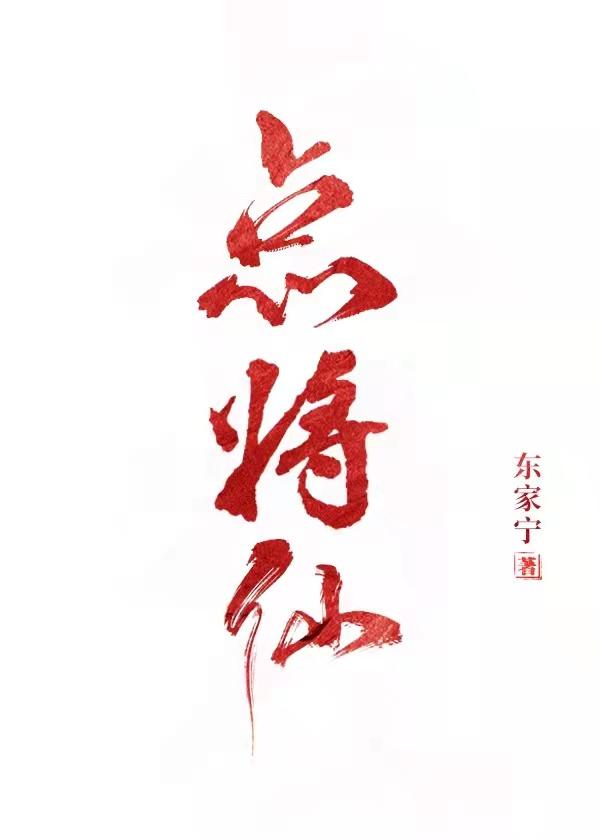 点将仙
东家宁著